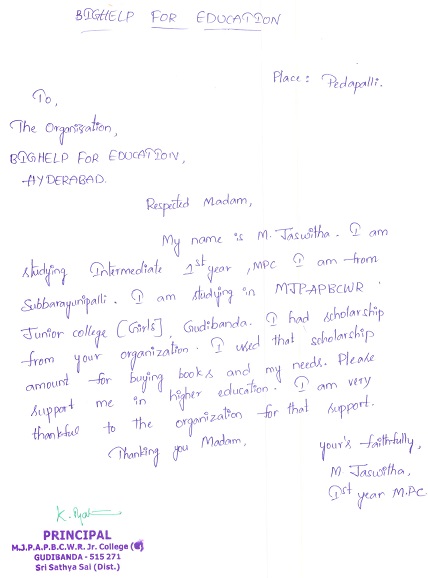 BIGHELP FOR EDUCATION
Place: Pedapalli.
To,
The Organization,
BIGHELP FOR EDUCATION,
HYDERABAD.
Respected Madam,
My name is M. Jaswitha. I am
studying Intermediate 1st year, MPC I am from
Subbarayunipalli. I am studying in MJPAPBCWR
Junior college [Girls], Gudibanda. I had scholarship
from your organization. I used that scholarship
amount for buying books and my needs. Please
support me in higher education. I am very
thankful to the organization for that support.
Thanking you Madam,
your's faithfully,
M Jaswitha,
Ist year M.PC
PRINCIPAL
M.J.P.A.P.B.C.W.R. Jr. College (G)
GUDIBANDA - 515 271
Sri Sathya Sai (Dist.)